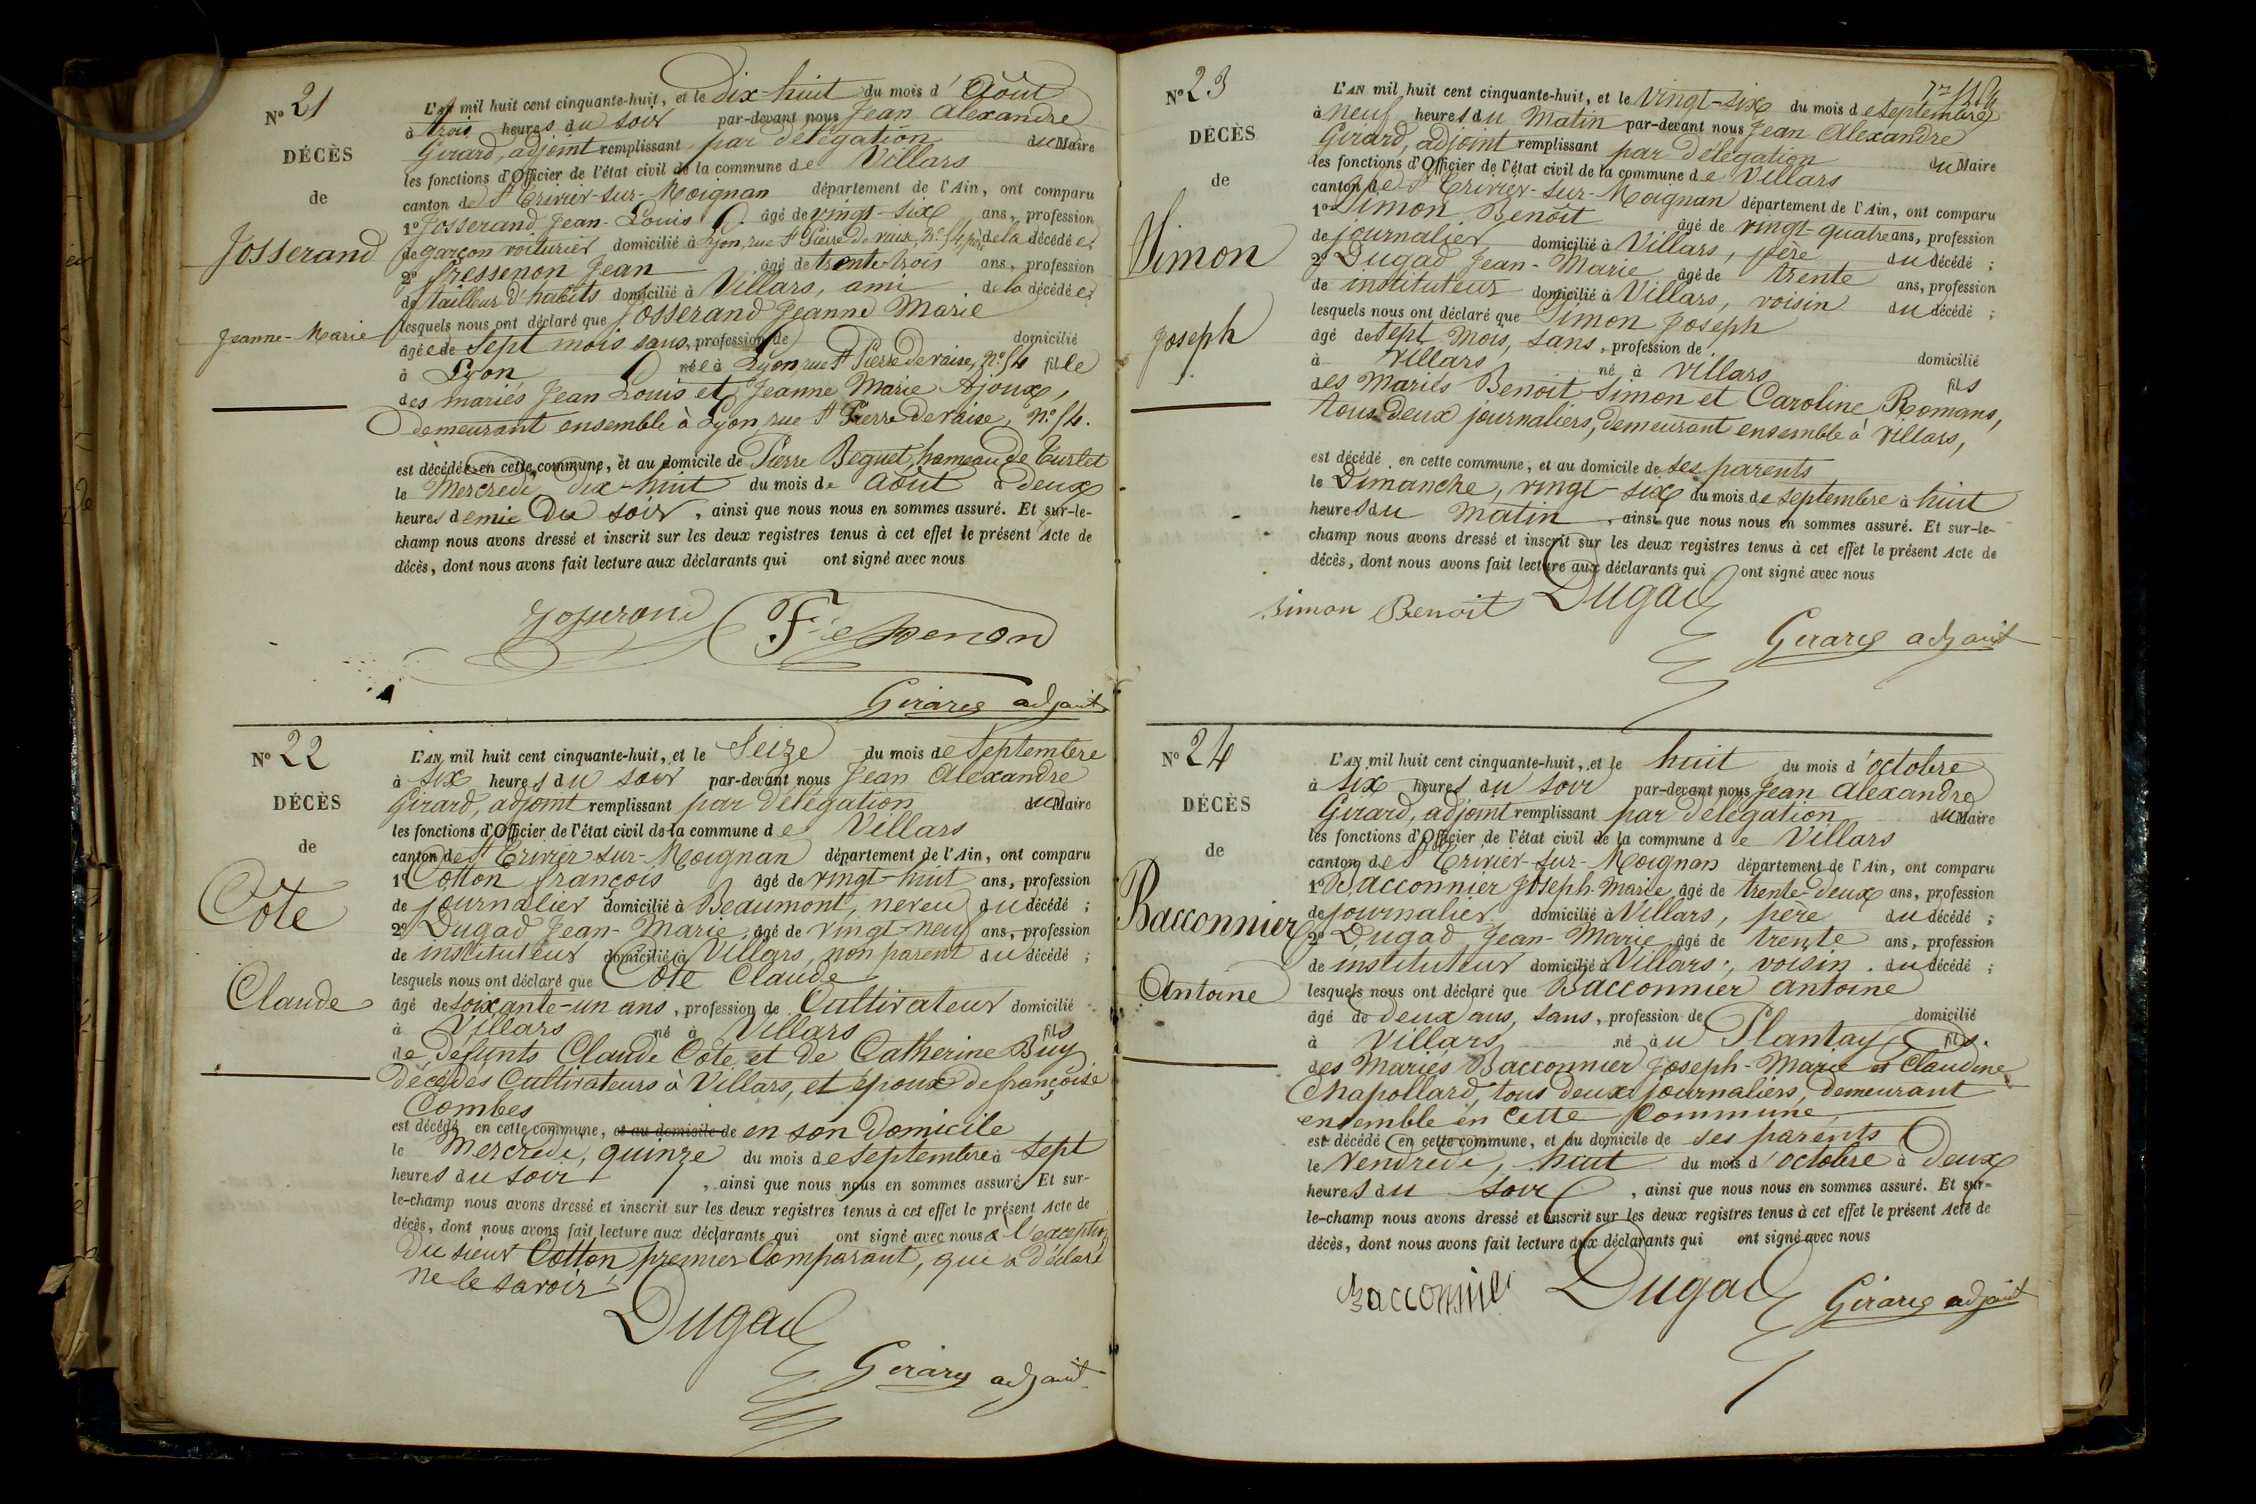 N° 21
DÉCÈS
de
Josserand
Jeanne-Marie
L'AN mil huit cent cinquante-huit, et le dix-huit du mois d'Août
à trois heures du soir par-devant nous Jean Alexandre
Girard, adjoint remplissant par délégation du Maire
les fonctions d'Officier de l'état civil de la commune de Villars
canton de St Trivier-sur-Moignan département de l'Ain, ont comparu
1° Josserand Jean-Louis âgé de vingt-six ans, profession
de garçon voiturier domicilié à Lyon, rue St Pierre de vaise, N° 14, père de la décédée;
2° Fressenon Jean âgé de trente-trois ans, profession
de tailleur d'habits domicilié à Villars, ami de la décédée;
lesquels nous ont déclaré que Josserand Jeanne Marie
âgée de sept mois sans, profession de domicilié
à Lyon née à Lyon rue St Pierre de vaise, N° 14 fille
des mariés Jean Louis et Jeanne Marie Ajoux,
demeurant ensemble à Lyon, rue St Pierre de vaise, N° 14.
est décédée en cette commune, et au domicile de Pierre Beguet, hameau de Turlet
le Mercredi dix-huit du mois de Août à deux
heures demie du soir, ainsi que nous nous en sommes assuré. Et sur-le-
champ nous avons dressé et inscrit sur les deux registres tenus à cet effet le présent Acte de
décès, dont nous avons fait lecture aux déclarants qui ont signé avec nous
Josserand Fressenon
Girard adjoint
N° 22
DÉCÈS
de
Côte
Claude
L'AN mil huit cent cinquante-huit, et le Seize du mois de Septembre
à six heures du soir par-devant nous Jean Alexandre
Girard, adjoint remplissant par délégation du Maire
les fonctions d'Officier de l'état civil de la commune de Villars
canton de St Trivier-sur-Moignan département de l'Ain, ont comparu
1° Cotton françois âgé de vingt-huit ans, profession
de journalier domicilié à Beaumont, neveu du décédé;
2° Dugad Jean-Marie âgé de vingt-neuf ans, profession
de instituteur domicilié à Villars, non parent du décédé;
lesquels nous ont déclaré que Côte Claude
âgé de soixante-un ans, profession de Cultivateur domicilié
à Villars né à Villars fils
de Défunts Claude Côte et de Catherine Buy
décédés Cultivateurs à Villars, et époux de françoise
Combes
est décédé en cette commune, et au domicile de en son domicile
le Mercredi, quinze du mois de septembre à sept
heures du soir, ainsi que nous nous en sommes assuré. Et sur-
le-champ nous avons dressé et inscrit sur les deux registres tenus à cet effet le présent Acte de
décès, dont nous avons fait lecture aux déclarants qui ont signé avec nous à l'exception
du sieur Cotton premier Comparant, qui a déclaré
ne le savoir
Dugad
Girard adjoint
N° 23
DÉCÈS
de
Simon
Joseph
L'AN mil huit cent cinquante-huit, et le vingt-six du mois de septembre
à neuf heures du Matin par-devant nous Jean Alexandre
Girard, adjoint remplissant par délégation du Maire
les fonctions d'Officier de l'état civil de la commune de Villars
canton de St Trivier-sur-Moignan département de l'Ain, ont comparu
1° Simon Benoît âgé de vingt-quatre ans, profession
de journalier domicilié à Villars, père du décédé;
2° Dugad Jean-Marie âgé de trente ans, profession
de instituteur domicilié à Villars, voisin du décédé;
lesquels nous ont déclaré que Simon Joseph
âgé de sept mois, sans, profession de domicilié
à Villars né à Villars fils
des Mariés Benoit Simon et Caroline Romans,
tous deux journaliers, demeurant ensemble à Villars,
est décédé en cette commune, et au domicile de ses parents
le Dimanche, vingt-six du mois de septembre à huit
heures du Matin, ainsi que nous nous en sommes assuré. Et sur-le-
champ nous avons dressé et inscrit sur les deux registres tenus à cet effet le présent Acte de
décès, dont nous avons fait lecture aux déclarants qui ont signé avec nous
Simon Benoit Dugad
Girard adjoint
N° 24
DÉCÈS
de
Bacconnier
Antoine
L'AN mil huit cent cinquante-huit, et le huit du mois d'octobre
à six heures du soir par-devant nous Jean Alexandre
Girard, adjoint remplissant par délégation du Maire
les fonctions d'Officier de l'état civil de la commune de Villars
canton de St Trivier-sur-Moignan département de l'Ain, ont comparu
1° Bacconnier Joseph-Marie âgé de trente-deux ans, profession
de journalier domicilié à Villars, père du décédé;
2° Dugad Jean-Marie âgé de trente ans, profession
de instituteur domicilié à Villars, voisin. du décédé;
lesquels nous ont déclaré que Bacconnier antoine
âgé de deux ans, sans, profession de domicilié
à Villars né au Plantay fils.
des Mariés Bacconnier Joseph-Marie et Claudine
Chapollard, tous deux journaliers, demeurant
ensemble en cette commune
est décédé en cette commune, et au domicile de ses parents
le Vendredi, huit du mois d'octobre à deux
heures du soir, ainsi que nous nous en sommes assuré. Et sur-
le-champ nous avons dressé et inscrit sur les deux registres tenus à cet effet le présent Acte de
décès, dont nous avons fait lecture aux déclarants qui ont signé avec nous
Bacconnier Dugad Girard adjoint